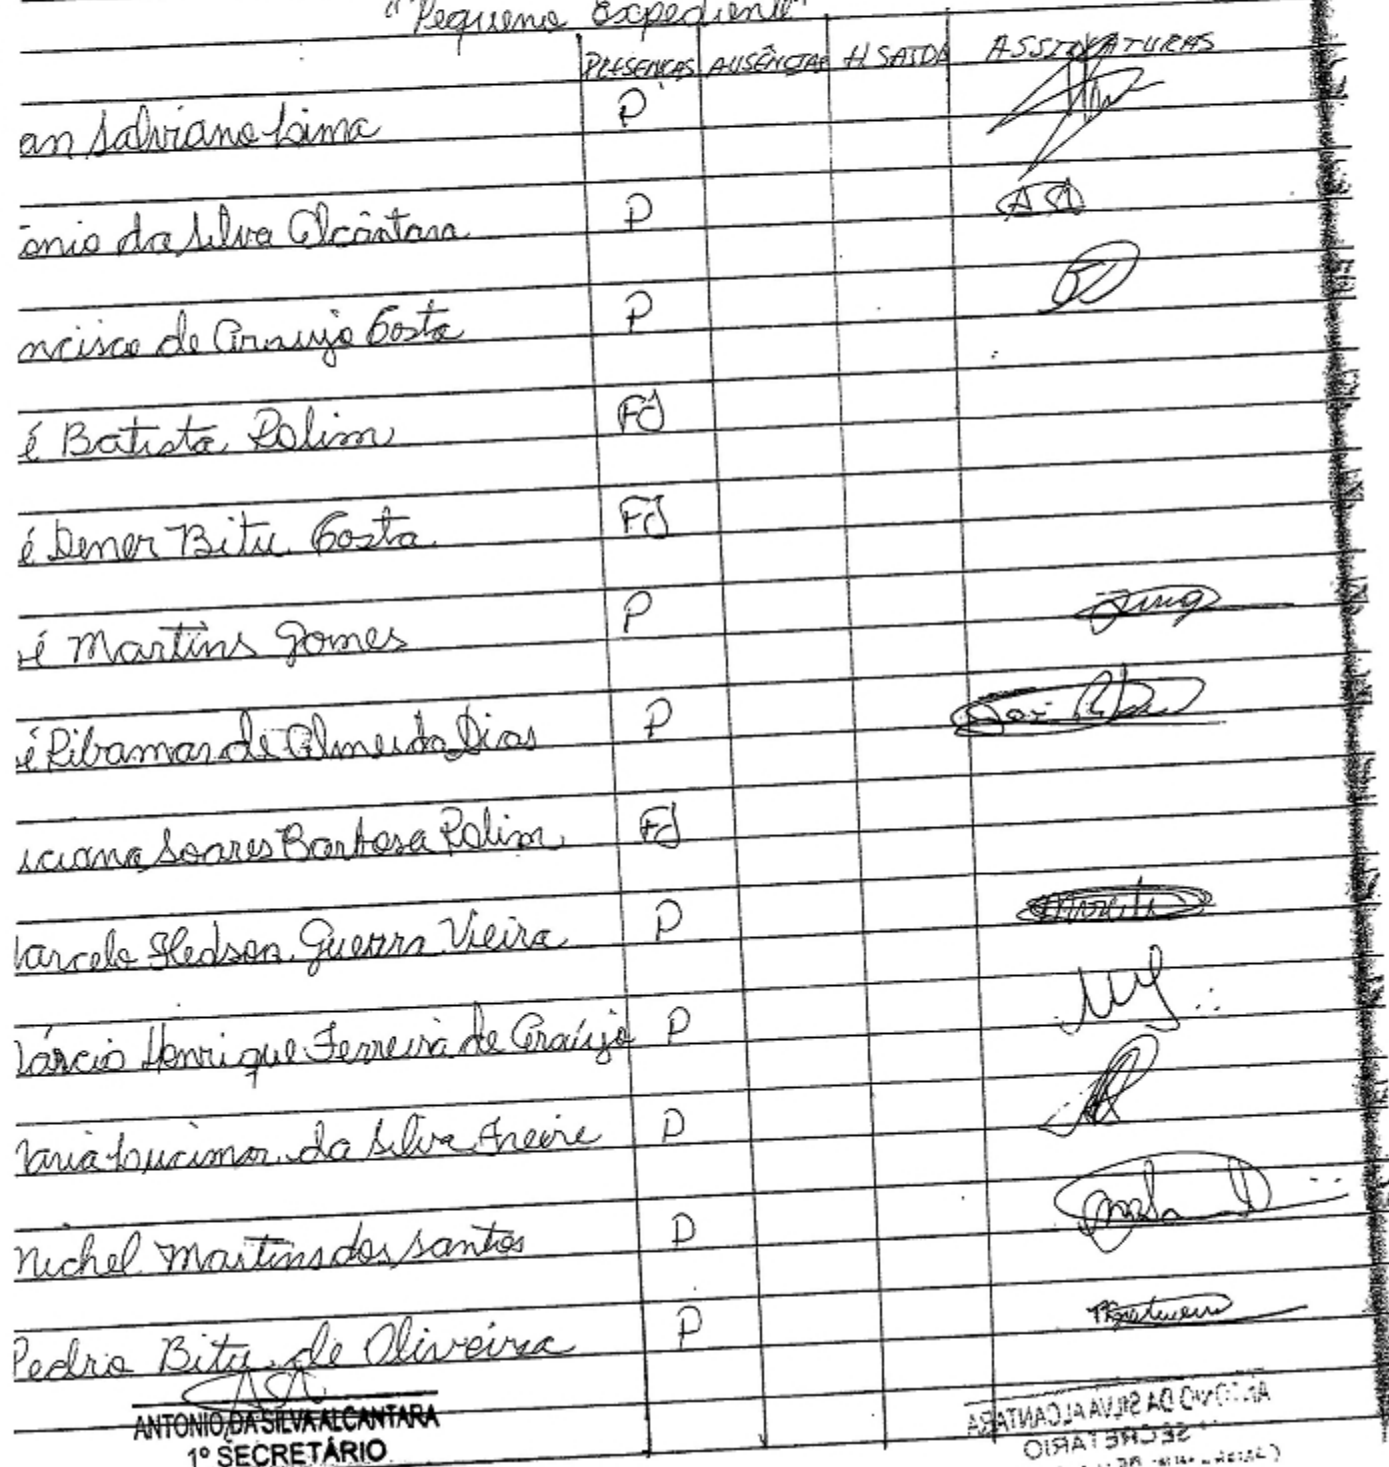 "Pequeno Expediente"
PRESENÇAS AUSÊNCIAS H SAIDA ASSINATURAS
an Salviano Lima P
ônio da Silva Alcântara P ASA
ncisco de Araujo Costa P
é Batista Rolim FJ
é Dener Bitu Costa FJ
sé Martins Gomes P
sé Ribamar de Almeida Dias P
uciana Soares Barbosa Rolim FJ
Marcelo Hedson Guerra Vieira P
Márcio Henrique Ferreira de Araújo P
Maria Lucimar da Silva Freire P
Michel Martins dos Santos P
Pedro Bitu de Oliveira P
ANTONIO DA SILVA ALCANTARA
1º SECRETÁRIO
ANTONIO DA SILVA ALCANTARA
SECRETARIO